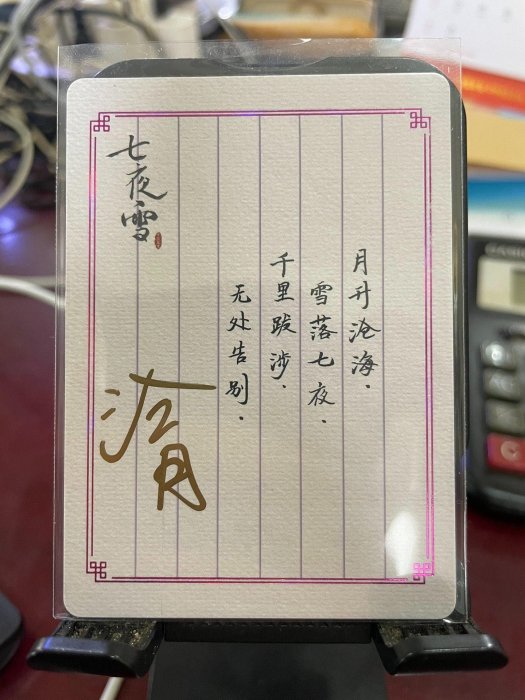 月升沧海.
雪落七夜.
千里跋涉.
无处告别.
七夜雪
沧月